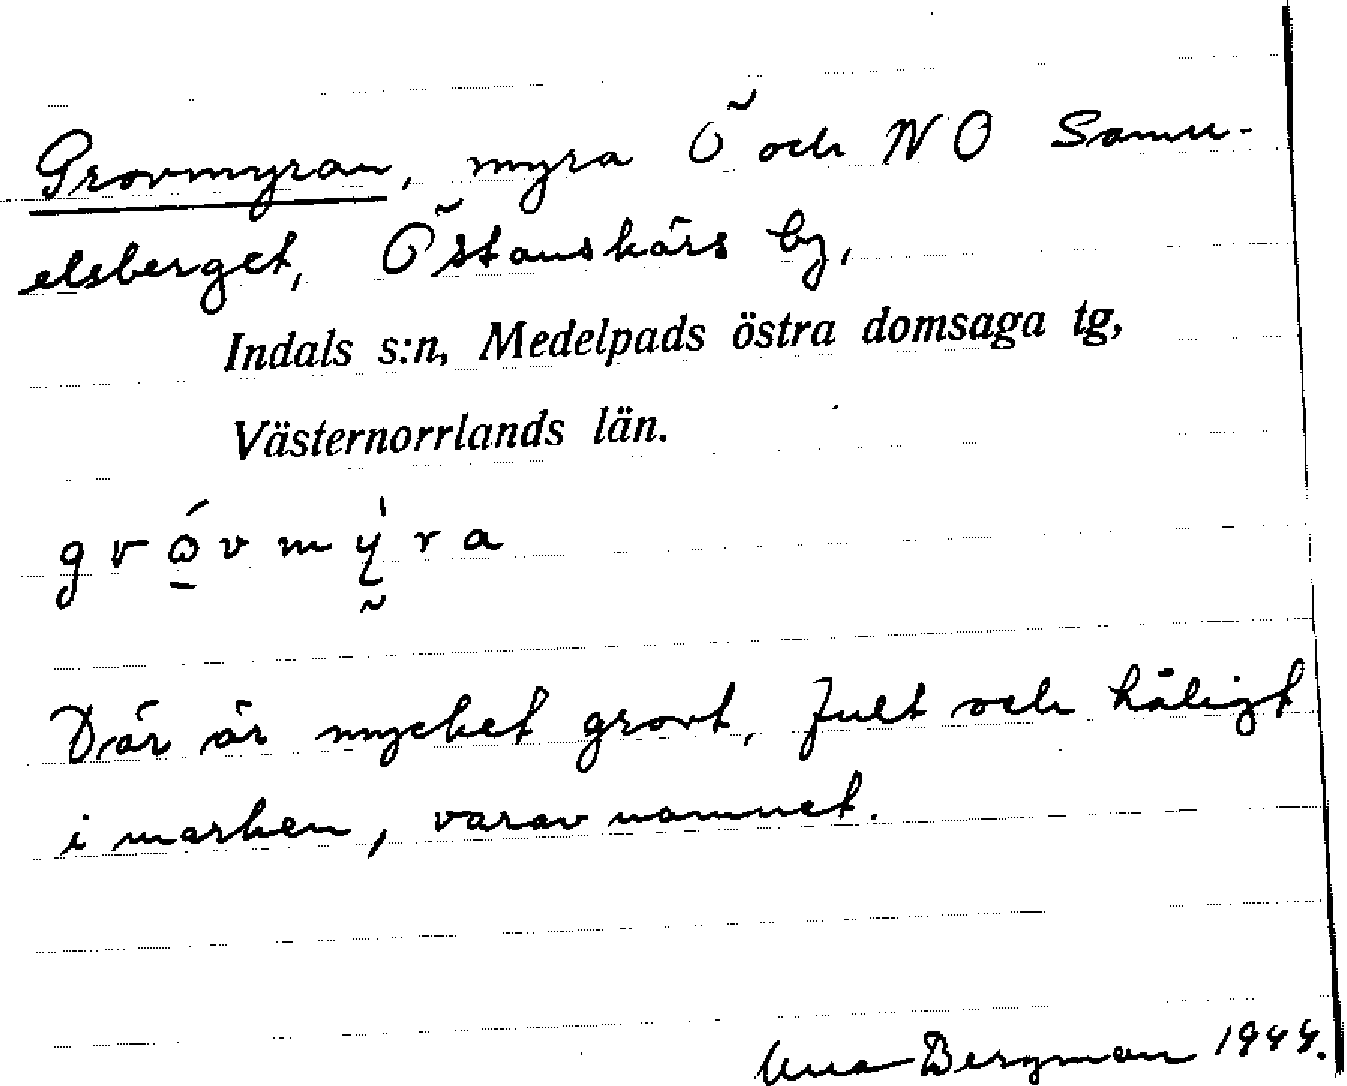 Grovmyran, myra Ö och NO Samu-
elsberget, Östanskärs by,
Indals s:n, Medelpads östra domsaga tg,
Västernorrlands län.
Där är mycket grovt, fult och håligt
i marken, varav namnet.
Bergman 1944.